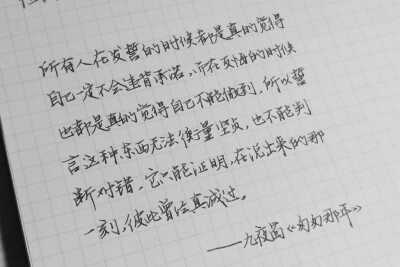 所有人在发誓的时候都是真的觉得
自己一定不会违背承诺，而在反悔的时候
也都是真的觉得自己不能做到。所以誓
言这种东西无法衡量坚贞，也不能判
断对错。它只能证明，在说出来的那
一刻，彼此曾信真诚过。
——九夜茴《匆匆那年》